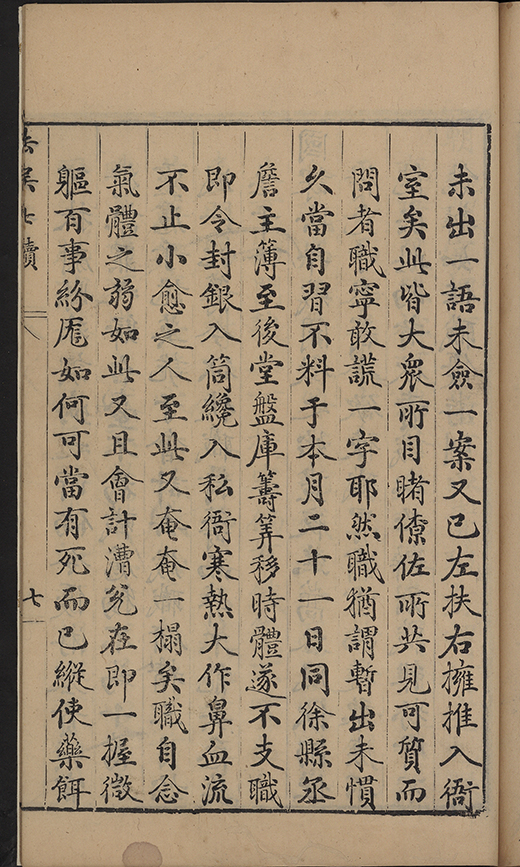 未出一語未僉一案又已左扶右擁推入衙
室矣此皆大衆所目睹僚佐所共見可質而
問者職寧敢謊一字耶然職猶謂暫出未慣
久當自習不料于本月二十一日同徐縣丞
詹主簿至後堂盤庫籌筭移時體遂不支職
即令封銀入筒纔入私衙寒熱大作鼻血流
不止小愈之人至此又奄奄一榻矣職自念
氣體之弱如此又且會計漕兌在即一握微
軀百事紛厖如何可當有死而已縱使藥餌
去吳七牘
七